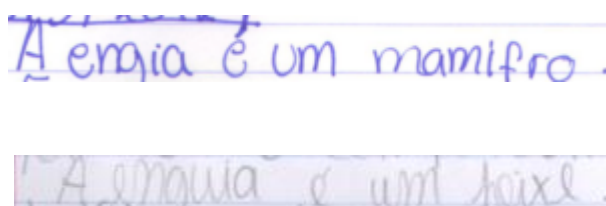 A engia é um mamifro.
A enguia é um peixe.